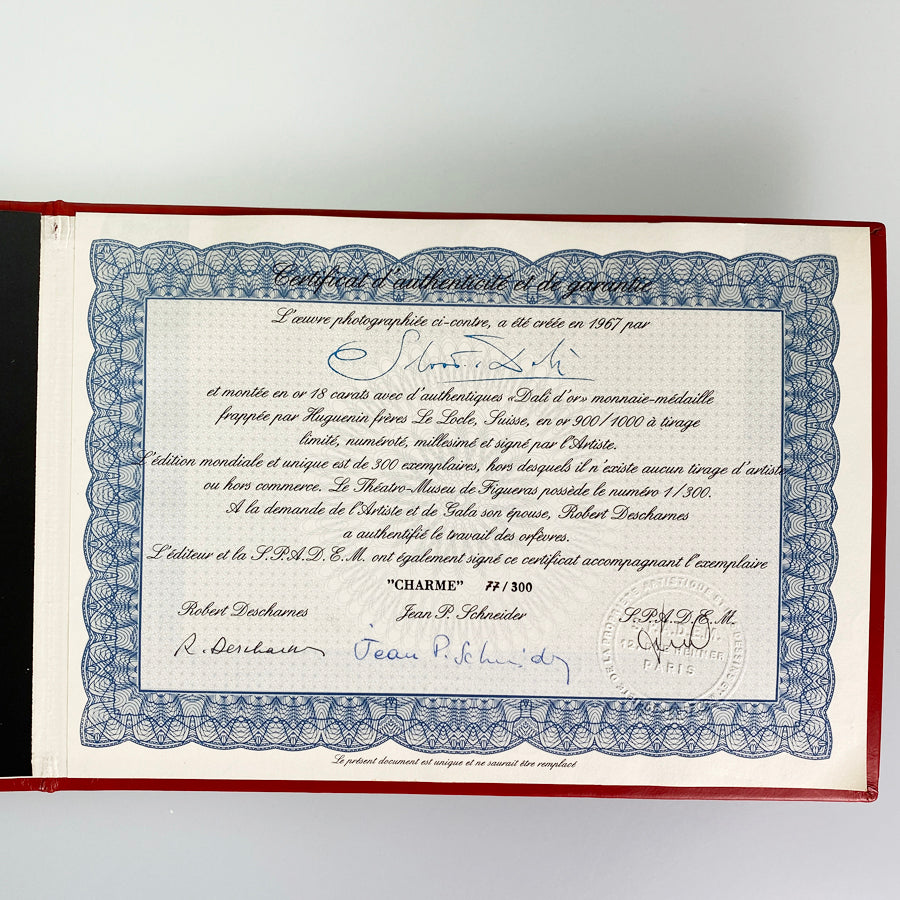 Certificat d'authenticité et de garantie
L'œuvre photographiée ci-contre, a été créée en 1967 par
et montée en or 18 carats avec d'authentiques «Dali d'or» monnaie-médaille
frappée par Huguenin frères Le Locle, Suisse, en or 900/1000 à tirage
limité, numéroté, millesimé et signé par l'Artiste.
L'édition mondiale et unique est de 300 exemplaires, hors desquels il n'existe aucun tirage d'artiste
ou hors commerce. Le Théatro-Museu de Figueras possède le numéro 1/300.
A la demande de l'Artiste et de Gala son épouse, Robert Descharnes
a authentifié le travail des orfèvres.
L'éditeur et la S.P.A.D.E.M. ont également signé ce certificat accompagnant l'exemplaire
"CHARME" 77/300
Robert Descharnes Jean P. Schneider S.P.A.D.E.M.
R. Descharnes Jean P. Schneider
PARIS
Le présent document est unique et ne saurait être remplacé